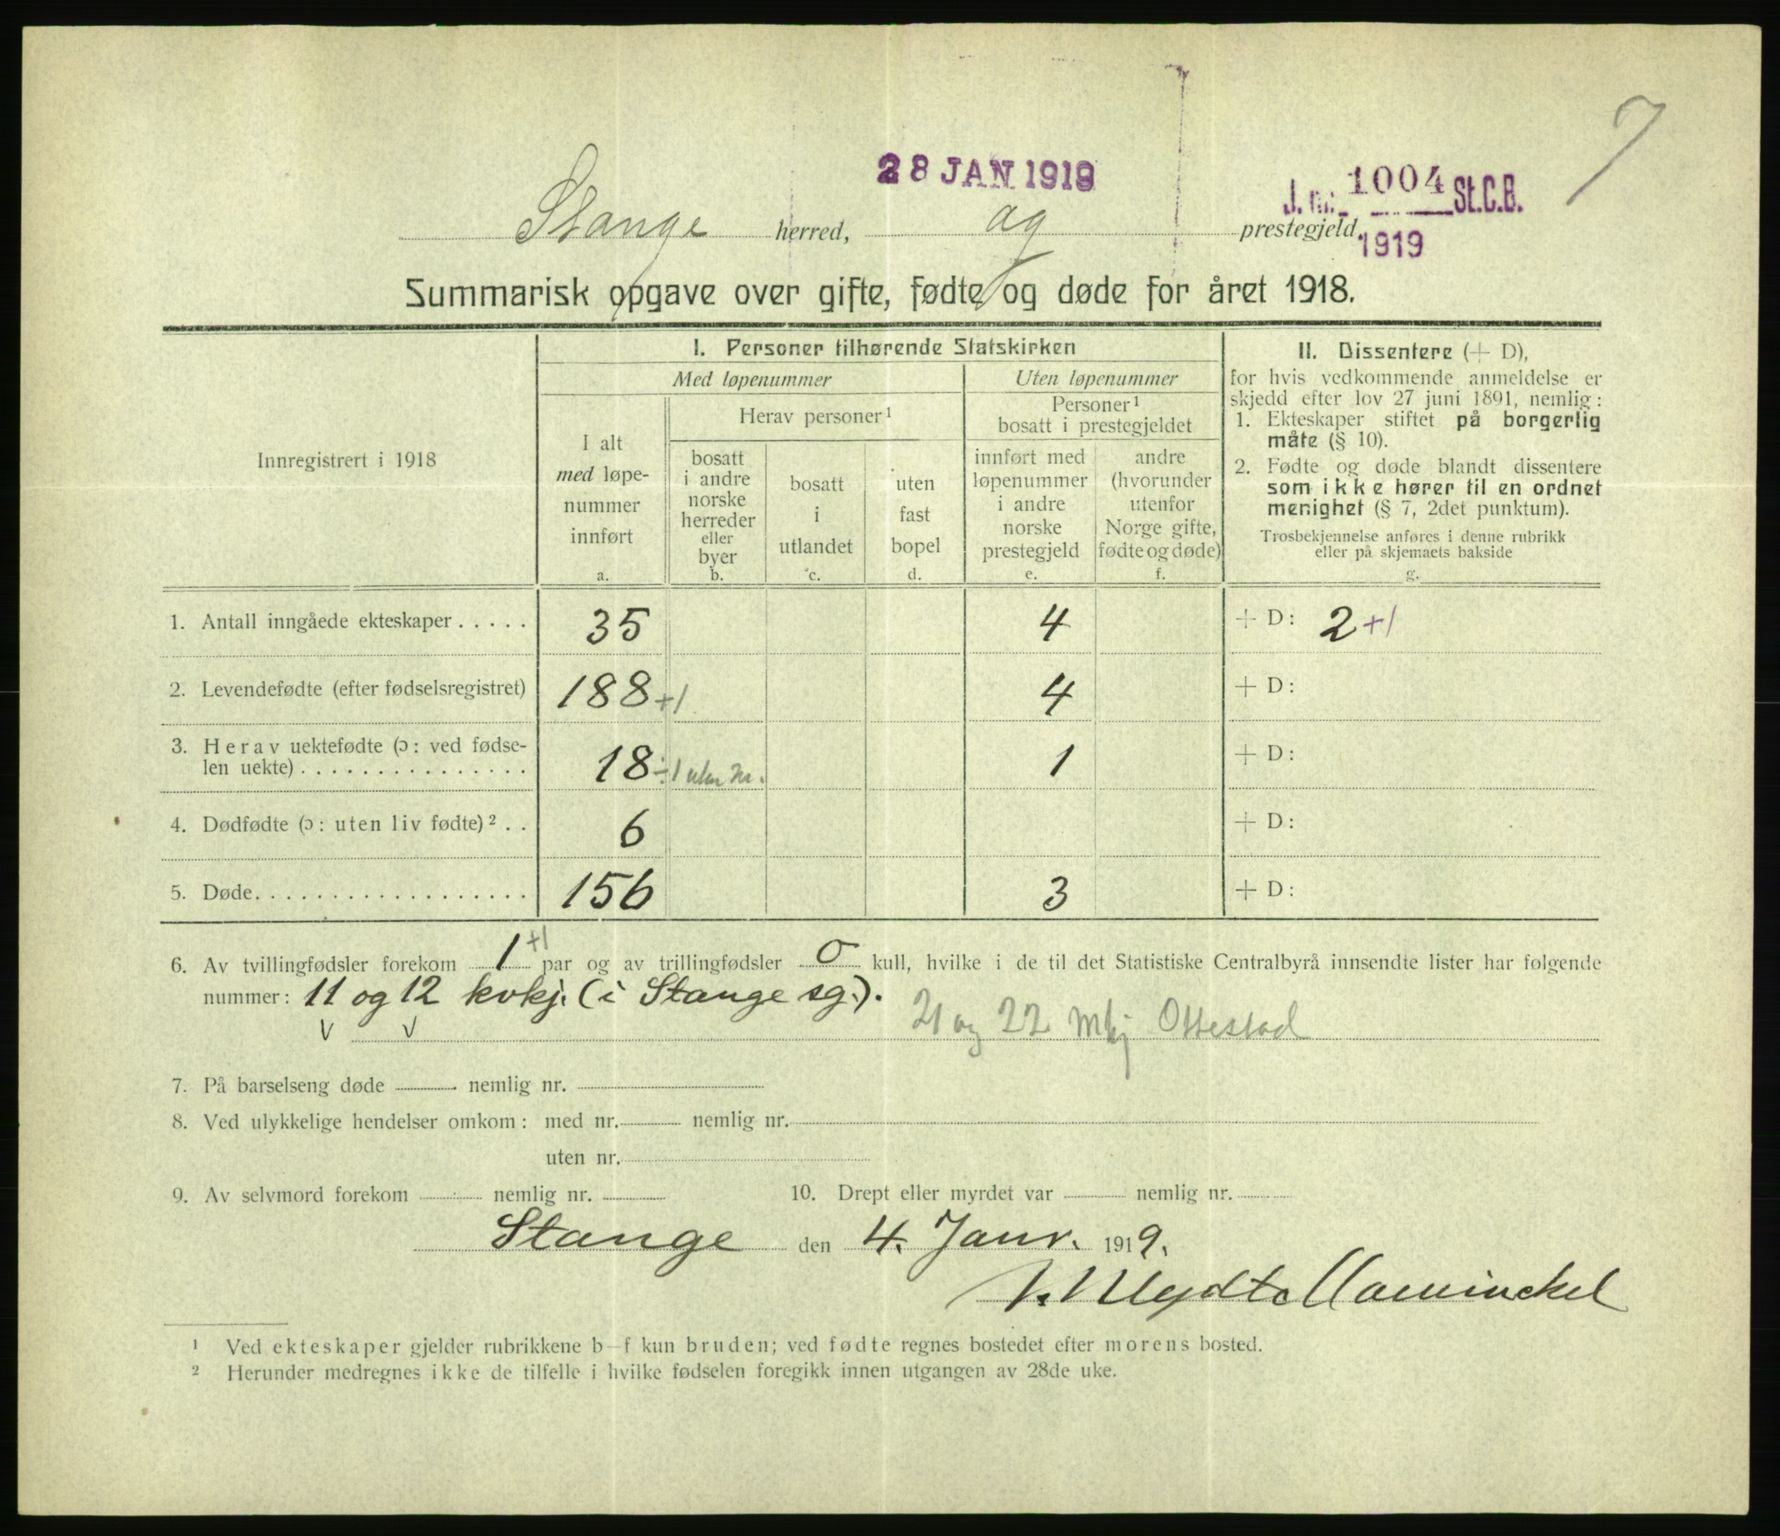 7
28 JAN 1919
J. nr. 1004 St.C.B.
1919
Stange herred, og prestegjeld.
Summarisk opgave over gifte, fødte og døde for året 1918.
Innregistrert i 1918
I. Personer tilhørende Statskirken
Med løpenummer
Uten løpenummer
I alt
med løpe-
nummer
innført
a.
Herav personer¹
bosatt
i andre
norske
herreder
eller
byer
b.
bosatt
i
utlandet
c.
uten
fast
bopel
d.
Personer¹
bosatt i prestegjeldet
innført med
løpenummer
i andre
norske
prestegjeld
e.
andre
(hvorunder
utenfor
Norge gifte,
fødte og døde)
f.
II. Dissentere (+ D),
for hvis vedkommende anmeldelse er
skjedd efter lov 27 juni 1891, nemlig:
1. Ekteskaper stiftet på borgerlig
måte (§ 10).
2. Fødte og døde blandt dissentere
som ikke hører til en ordnet
menighet (§ 7, 2det punktum).
Trosbekjennelse anføres i denne rubrikk
eller på skjemaets bakside
g.
1. Antall inngåede ekteskaper ..... 35 4 + D: 2 +1
2. Levendefødte (efter fødselsregistret) 188 +1 4 + D:
3. Herav uektefødte (ɔ: ved fødse-
len uekte) ............... 18 ÷1 uten nr. 1 + D:
4. Dødfødte (ɔ: uten liv fødte)² .. 6 + D:
5. Døde .................. 156 3 + D:
6. Av tvillingfødsler forekom 1 +1 par og av trillingfødsler 0 kull, hvilke i de til det Statistiske Centralbyrå innsendte lister har følgende
nummer: 11 og 12 kvkj. (i Stange sg.).
21 og 22 Mkj Ottestad
7. På barselseng døde nemlig nr.
8. Ved ulykkelige hendelser omkom: med nr. nemlig nr.
uten nr.
9. Av selvmord forekom nemlig nr. 10. Drept eller myrdet var nemlig nr.
Stange den 4. Janr. 1919.
¹ Ved ekteskaper gjelder rubrikkene b–f kun bruden; ved fødte regnes bostedet efter morens bosted.
² Herunder medregnes ikke de tilfelle i hvilke fødselen foregikk innen utgangen av 28de uke.